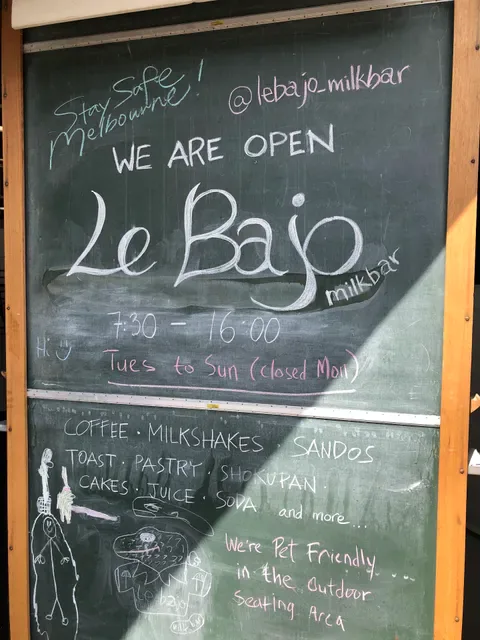 Stay Safe
Melbourne!
@lebajo_milkbar
WE ARE OPEN
Le Bajo
milkbar
7:30 – 16:00
Hi
Tues to Sun (closed Mon)
COFFEE · MILKSHAKES · SANDOS
TOAST · PASTRY · SHOKUPAN ·
CAKES · JUICE · SODA and more...
We're Pet Friendly...
in the outdoor
Seating Area
Le bajo